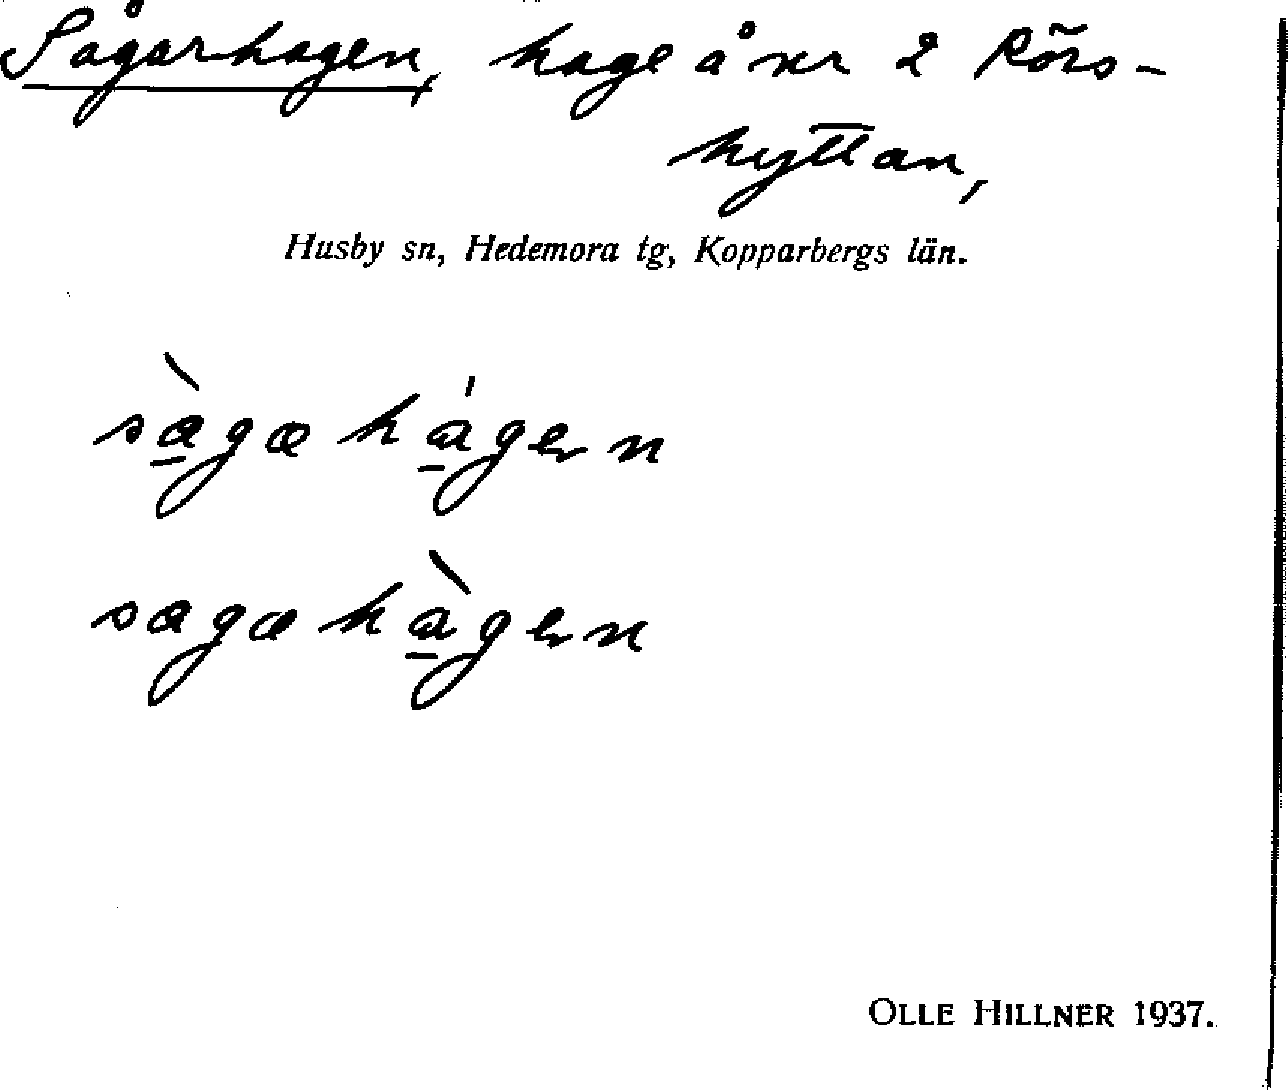 Sågarhagen, hage å nr 2 Rörs-
hyttan,
Husby sn, Hedemora tg, Kopparbergs län.
sàgæhágen
sagæhàgen
OLLE HILLNER 1937.